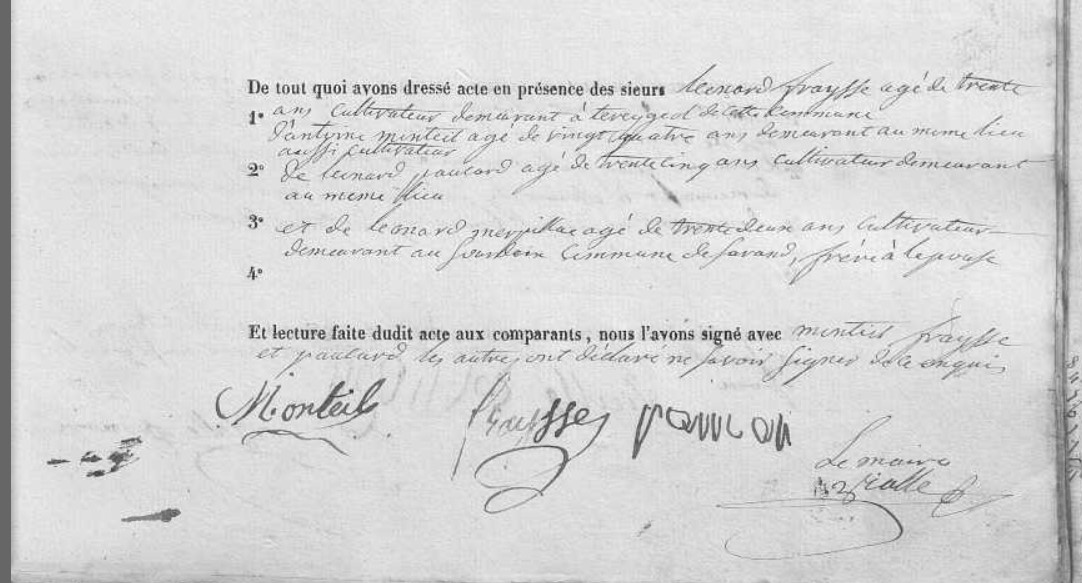 De tout quoi avons dressé acte en présence des sieurs leonard fraysse agé de trente
1° ans cultivateur demeurant à de cette Commune
d'antoine monteil agé de vingt quatre ans demeurant au meme lieu
aussi cultivateur
2° de leonard pautard agé de trente cinq ans cultivateur demeurant
au meme lieu
3° et de leonard agé de trente deux ans cultivateur
demeurant au Commune de favard, frère à lepouse
4°
Et lecture faite dudit acte aux comparants, nous l'avons signé avec monteil fraysse
et pautard les autres ont déclaré ne savoir signer de ce enquis
Monteil
Fraysse
Le maire
Vialle